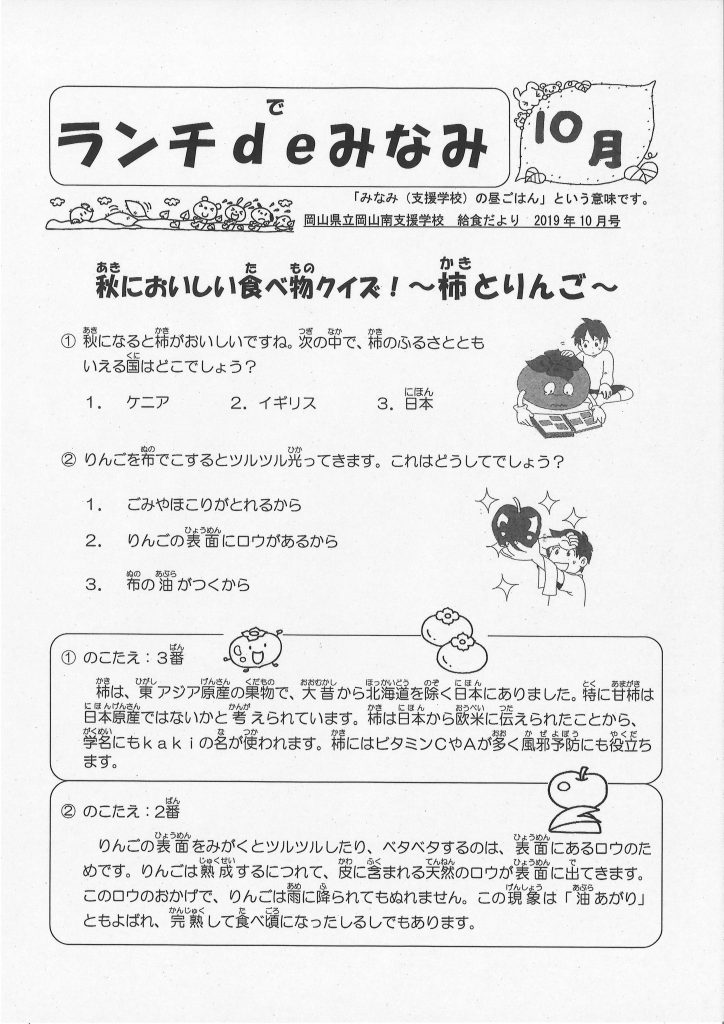 ランチdeみなみ
10月
「みなみ（支援学校）の昼ごはん」という意味です。
岡山県立岡山南支援学校　給食だより　2019年10月号
秋においしい食べ物クイズ！～柿とりんご～
① 秋になると柿がおいしいですね。次の中で、柿のふるさととも
いえる国はどこでしょう？
1．　ケニア　　　2．イギリス　　　3．日本
② りんごを布でこするとツルツル光ってきます。これはどうしてでしょう？
1．　ごみやほこりがとれるから
2．　りんごの表面にロウがあるから
3．　布の油がつくから
① のこたえ：3番
柿は、東アジア原産の果物で、大昔から北海道を除く日本にありました。特に甘柿は
日本原産ではないかと考えられています。柿は日本から欧米に伝えられたことから、
学名にもｋａｋｉの名が使われます。柿にはビタミンCやAが多く風邪予防にも役立ち
ます。
② のこたえ：2番
りんごの表面をみがくとツルツルしたり、ベタベタするのは、表面にあるロウのた
めです。りんごは熟成するにつれて、皮に含まれる天然のロウが表面に出てきます。
このロウのおかげで、りんごは雨に降られてもぬれません。この現象は「油あがり」
ともよばれ、完熟して食べ頃になったしるしでもあります。